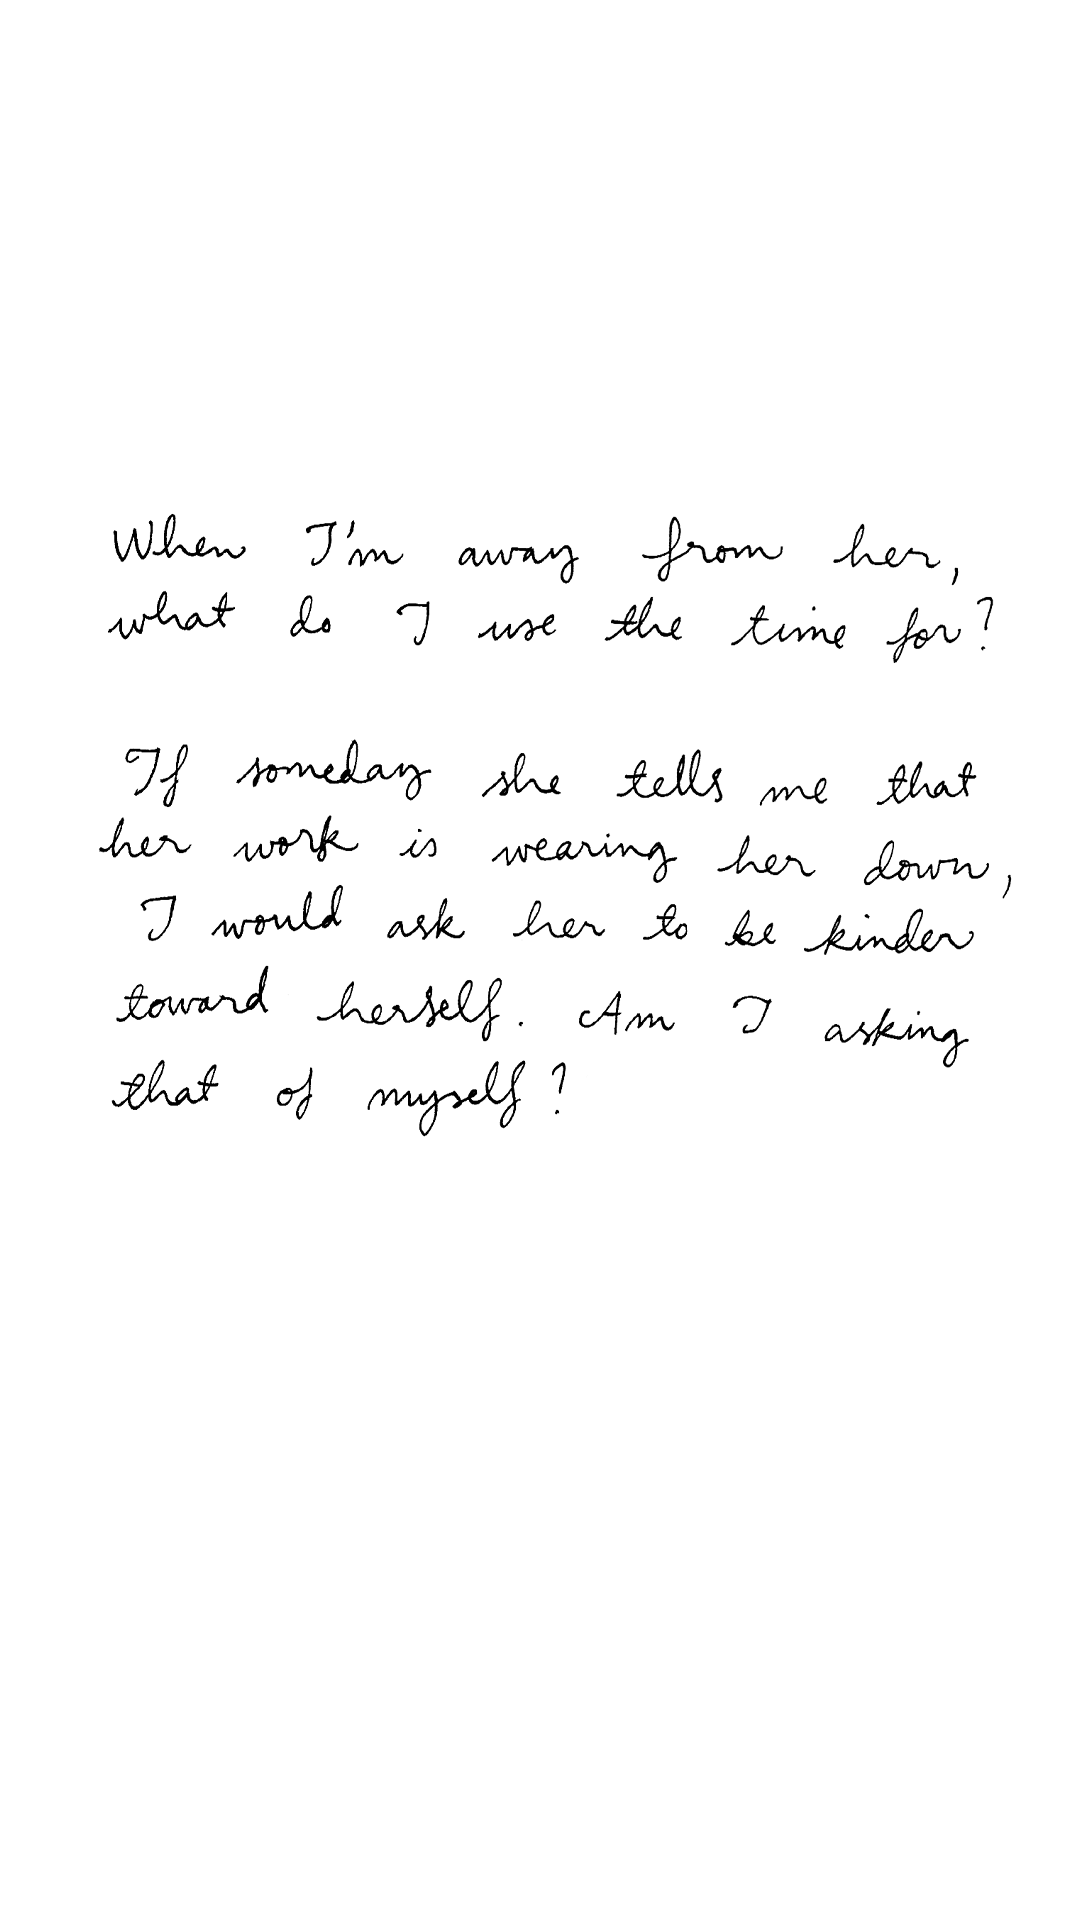 When I'm away from her,
what do I use the time for?
If someday she tells me that
her work is wearing her down,
I would ask her to be kinder
toward herself. Am I asking
that of myself?